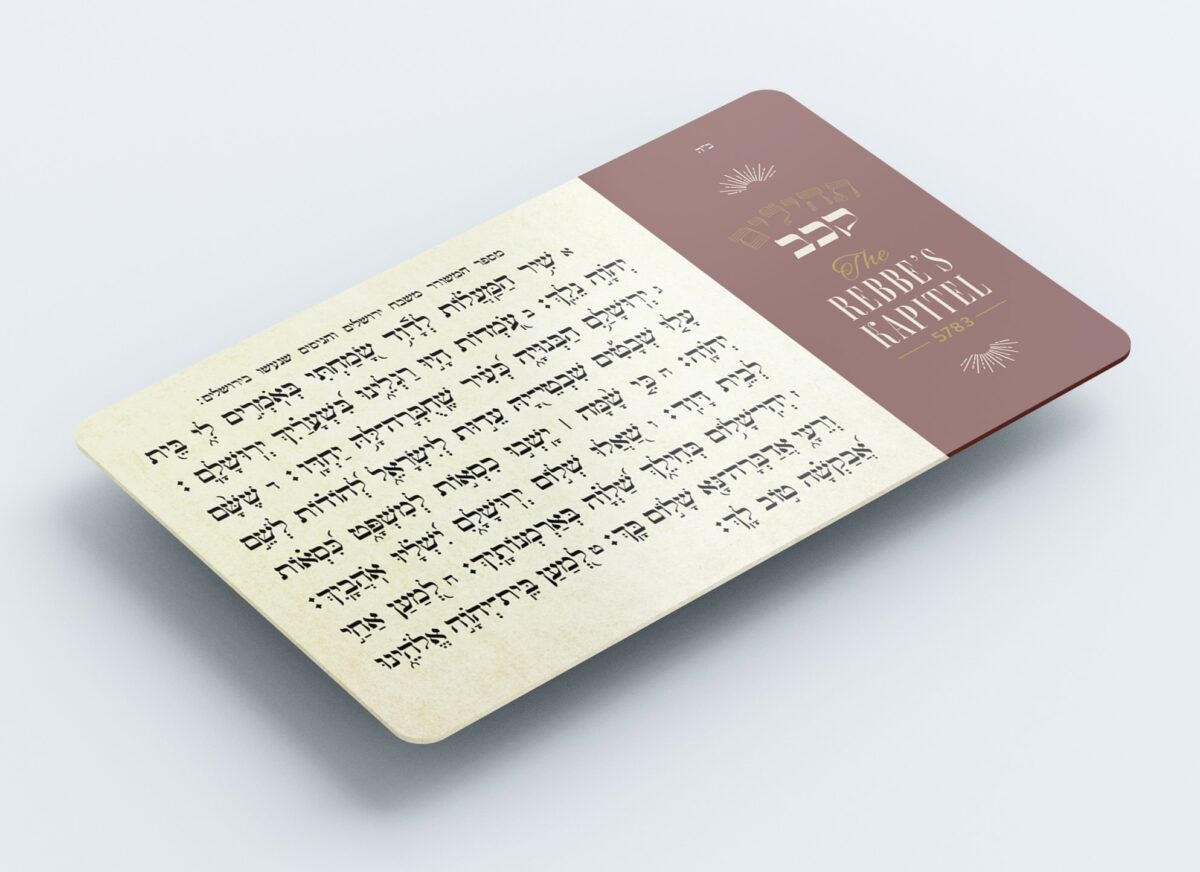 ב"ה
תהילים
קכב
The
REBBE'S
KAPITEL
5783
מספר המשורר משבח ירושלים וניסים שנעשו בירושלים:
א שִׁיר הַמַּעֲלוֹת לְדָוִד שָׂמַחְתִּי בְּאֹמְרִים לִי בֵּית
יְהוָה נֵלֵךְ: ב עֹמְדוֹת הָיוּ רַגְלֵינוּ בִּשְׁעָרַיִךְ יְרוּשָׁלִָם:
ג יְרוּשָׁלִַם הַבְּנוּיָה כְּעִיר שֶׁחֻבְּרָה לָּהּ יַחְדָּו: ד שֶׁשָּׁם
עָלוּ שְׁבָטִים שִׁבְטֵי יָהּ עֵדוּת לְיִשְׂרָאֵל לְהֹדוֹת לְשֵׁם
יְהוָה: ה כִּי שָׁמָּה | יָשְׁבוּ כִסְאוֹת לְמִשְׁפָּט כִּסְאוֹת
לְבֵית דָּוִד: ו שַׁאֲלוּ שְׁלוֹם יְרוּשָׁלִָם יִשְׁלָיוּ אֹהֲבָיִךְ:
ז יְהִי שָׁלוֹם בְּחֵילֵךְ שַׁלְוָה בְּאַרְמְנוֹתָיִךְ: ח לְמַעַן אַחַי
וְרֵעָי אֲדַבְּרָה נָּא שָׁלוֹם בָּךְ: ט לְמַעַן בֵּית יְהוָה אֱלֹהֵינוּ
אֲבַקְשָׁה טוֹב לָךְ: